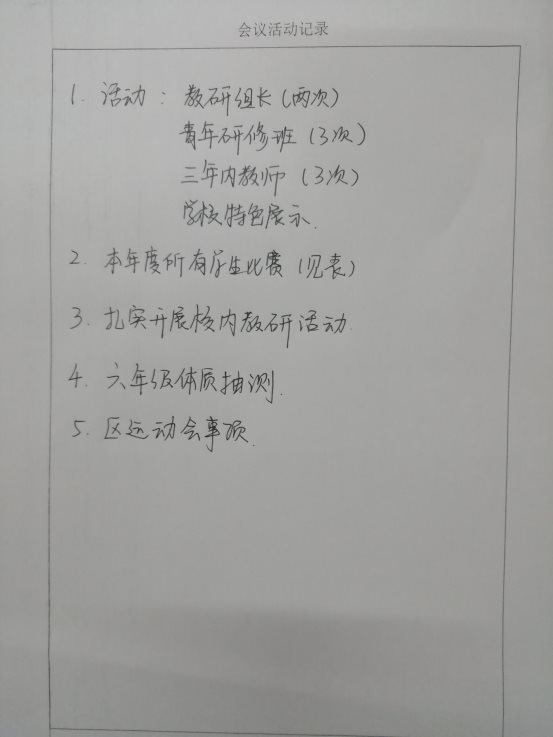 会议活动记录
1. 活动：教研组长（两次）
青年研修班（3次）
三年内教师（3次）
学校特色展示.
2. 本年度所有学生比赛（见表）
3. 扎实开展校内教研活动.
4. 六年级体质抽测.
5. 区运动会事项.